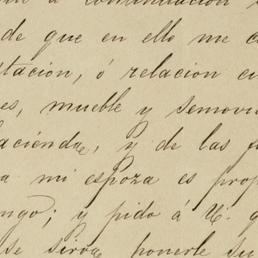 á continuacion
de que en ello me
tacion, ó relacion
es, mueble y semovi
acienda, y de las
a mi espoza es prop
ngo; y pido á U.
se sirva ponerle su